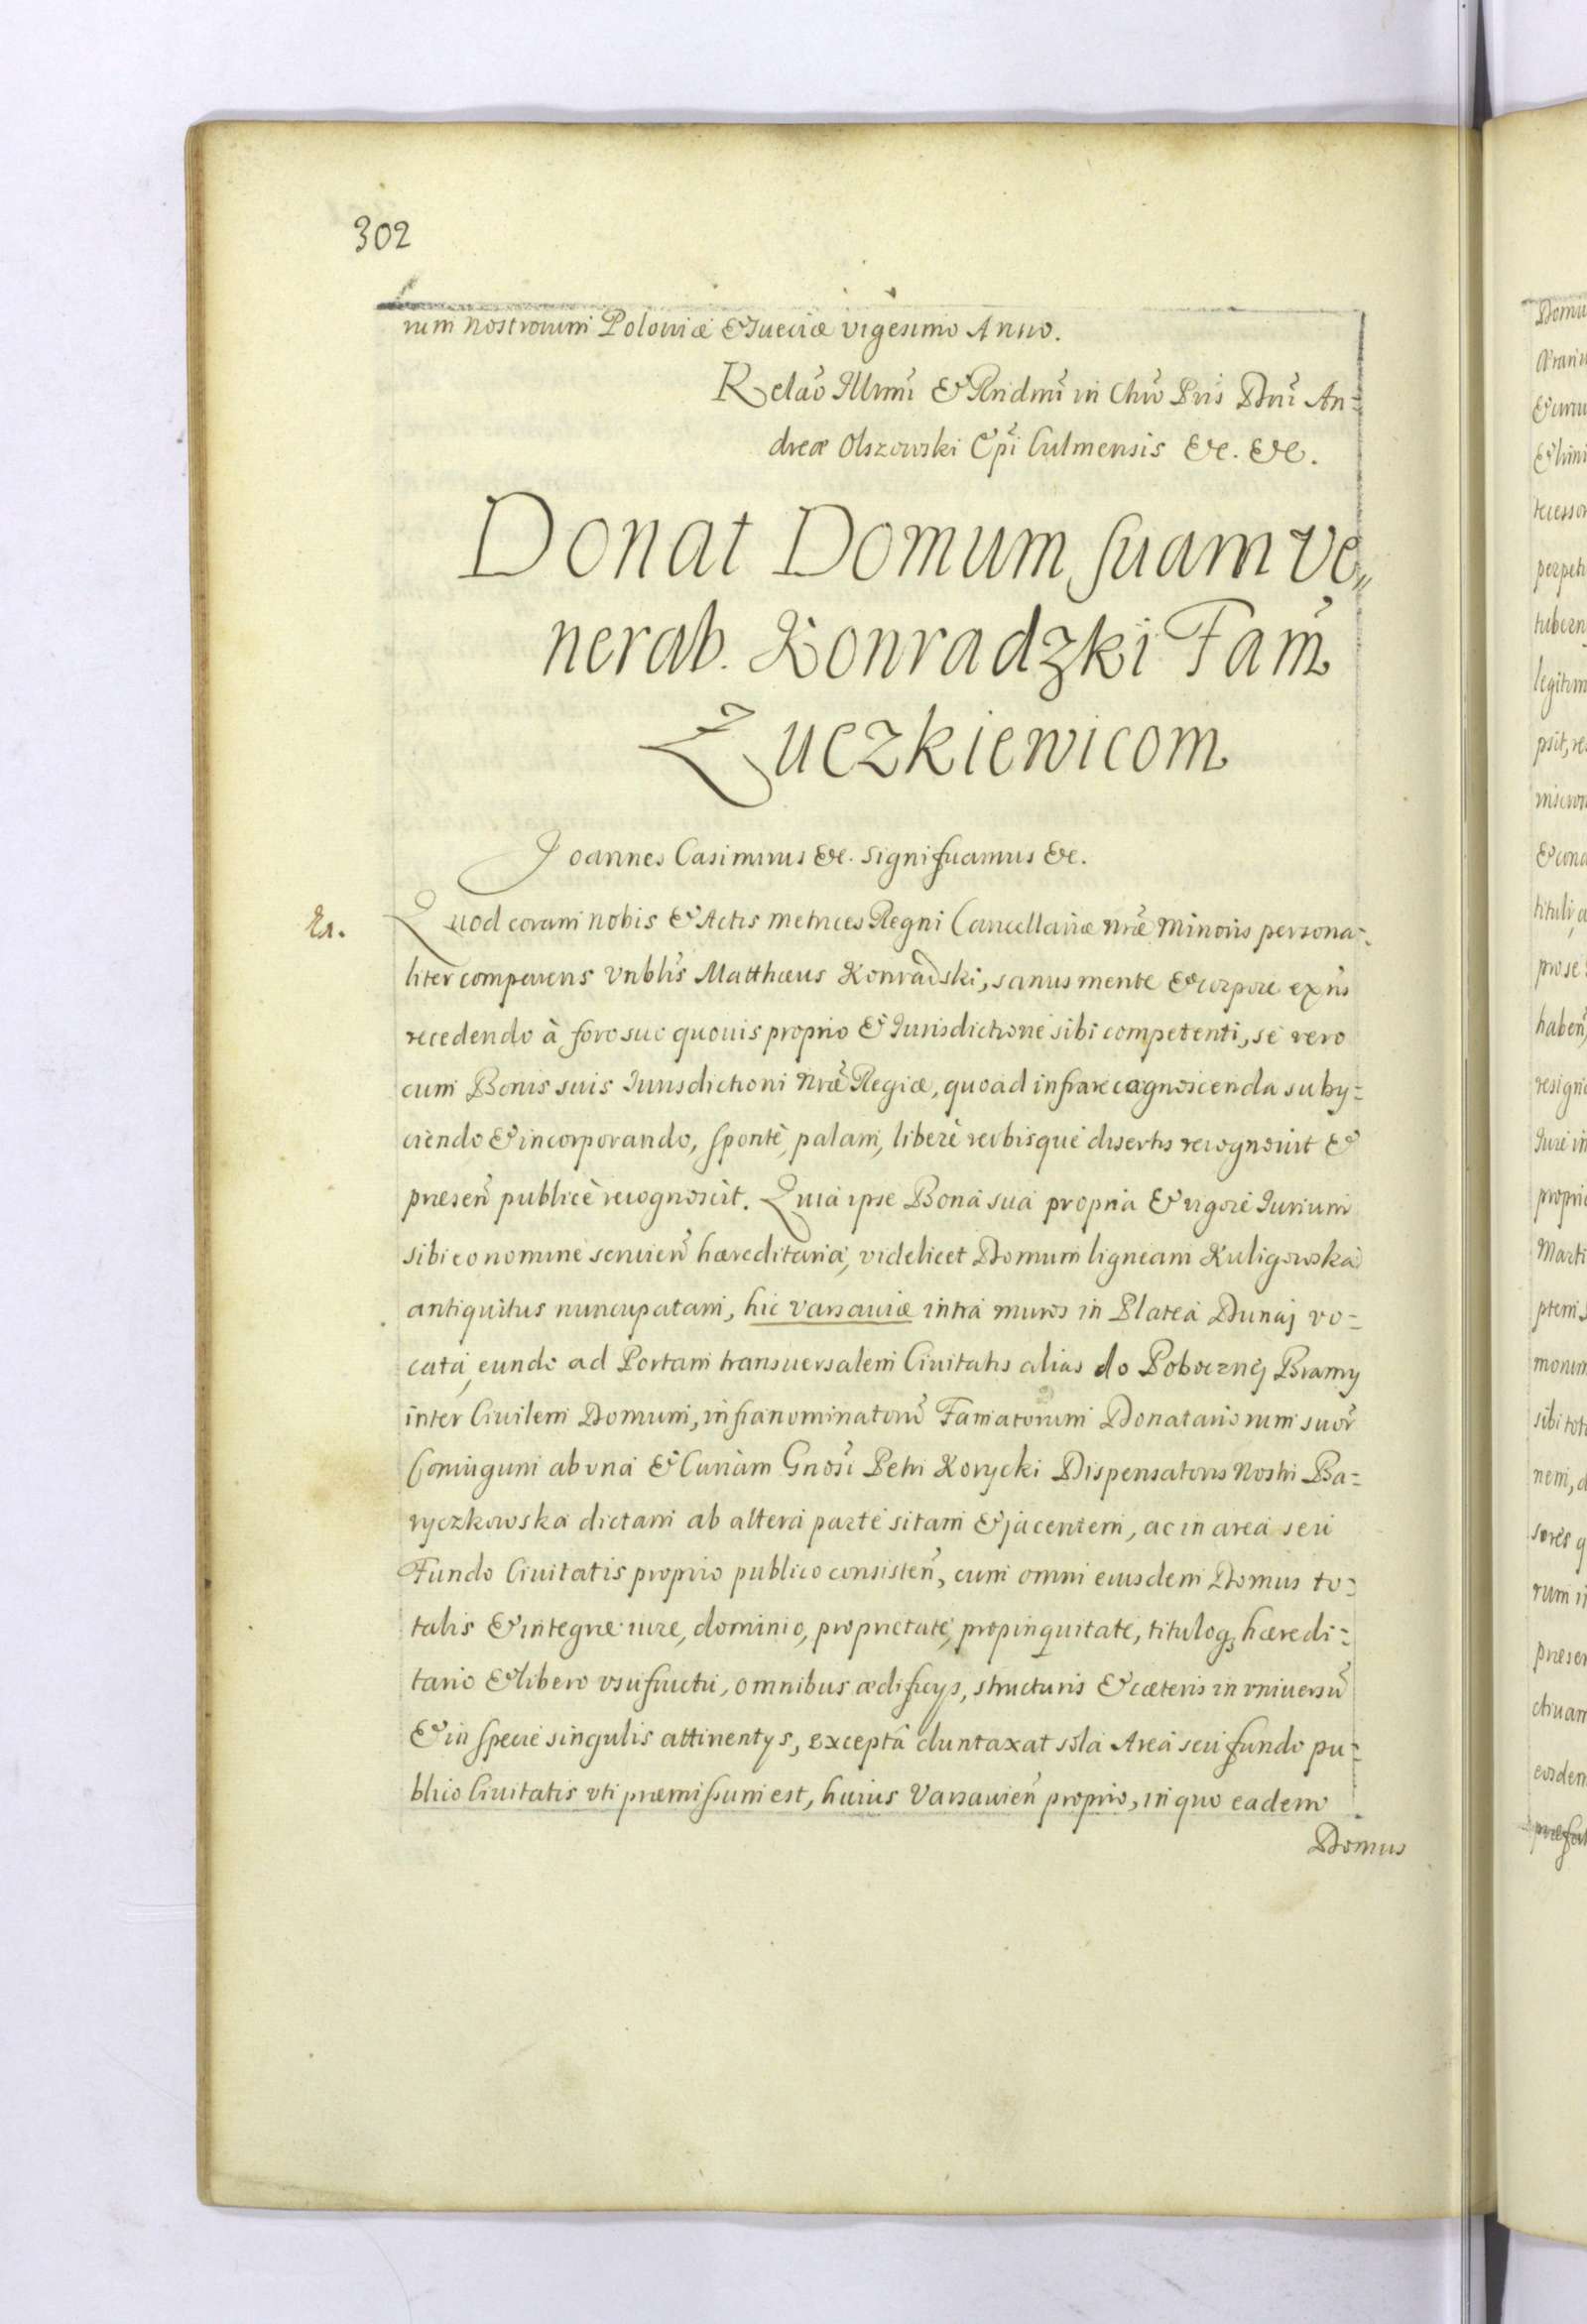 302
rum nostrorum Poloniæ & Sueciæ vigesimo Anno.
Relaõ Illmi & Rndmi in Chro Pris Dni An=
dreæ Olszowski Epi Culmensis &c. &c.
Donat Domum suam ve„
nerab. Konradzki Fam̃
Zuczkiewicom
Joannes Casimirus &c. significamus &c.
Quod coram nobis & Actis metrices Regni Cancellariæ nræ Minoris persona=
liter comparens Vnblis Matthæus Konradski, sanus mente & corpore exñs
recedendo à foro suo quouis proprio & Jurisdictione sibi competenti, se vero
cum Bonis suis Jurisdictioni nræ Regiæ, quoad infra recognoscenda subÿ=
ciendo & incorporando, spontè, palam, liberè verbisque disertis recognouit &
præseñ publicè recognoscit. Quia ipse Bona sua propria & vigore Jurium
sibi eo nomine seruieñ hæreditaria, videlicet Domum ligneam Kuligowska
antiquitus nuncupatam, hic Varsauiæ intra muros in Platea Dunaj vo=
cata, eundo ad Portam transuersalem Ciuitatis alias do Poboczney Bramy
inter Ciuilem Domum, infranominatorũ Famatorum Donatariorum suor̃
Coniugum ab vna & Curiam Gnosi Petri Korycki Dispensatoris Nostri Ba=
ryczkowska dictam ab altera parte sitam & jacentem, ac in area seu
Fundo Ciuitatis proprio publico consisteñ, cum omni eiusdem Domus to=
talis & integræ iure, dominio, proprietate, propinquitate, tituloq; hæredi=
tario & libero vsufructu, omnibus ædificÿs, structuris & cæteris in vniuersũ
& in specie singulis attinentÿs, exceptâ duntaxat sola Area seu fundo pu=
blico Ciuitatis vti præmissum est, huius Varsauieñ proprio, in quo eadem
Domus